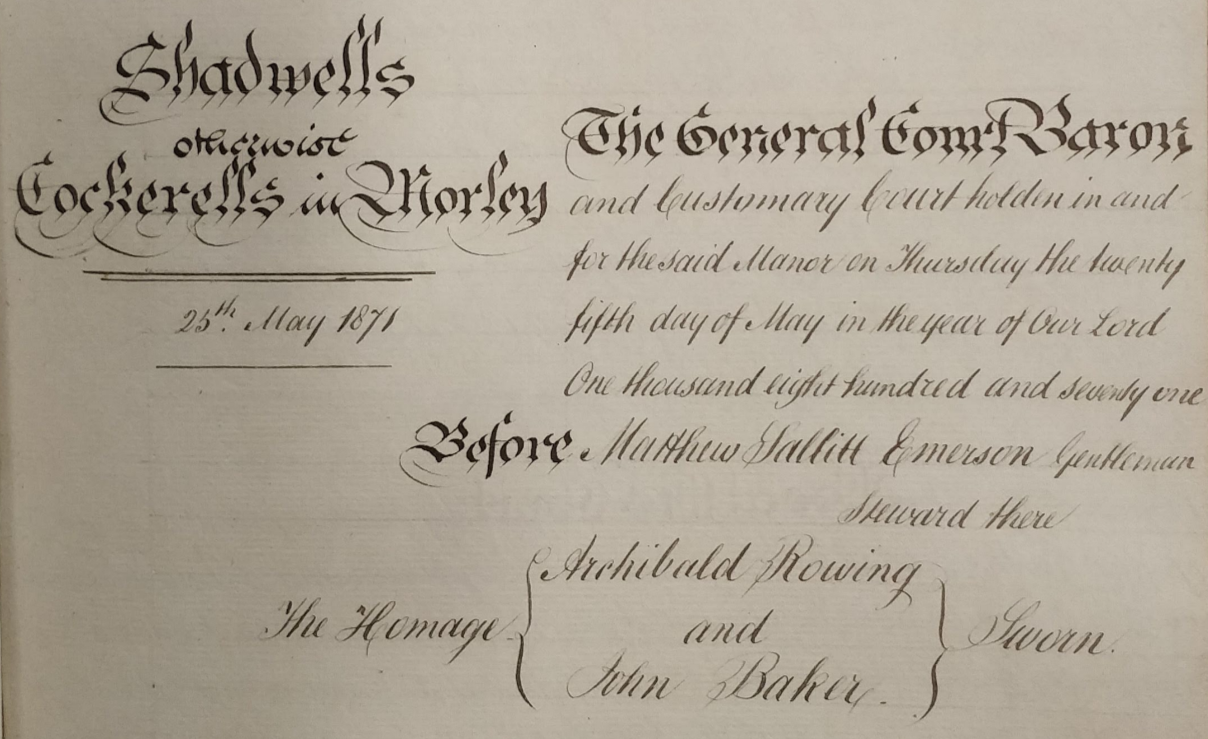 Shadwells
otherwise
Cockerells in Morley
25th. May 1871
The General Court Baron
and Customary Court holden in and
for the said Manor on Thursday the twenty
fifth day of May in the year of Our Lord
One thousand eight hundred and seventy one
Before Matthew Sallitt Emerson Gentleman
Steward there
The Homage { Archibald Rowing
and
John Baker. } Sworn.